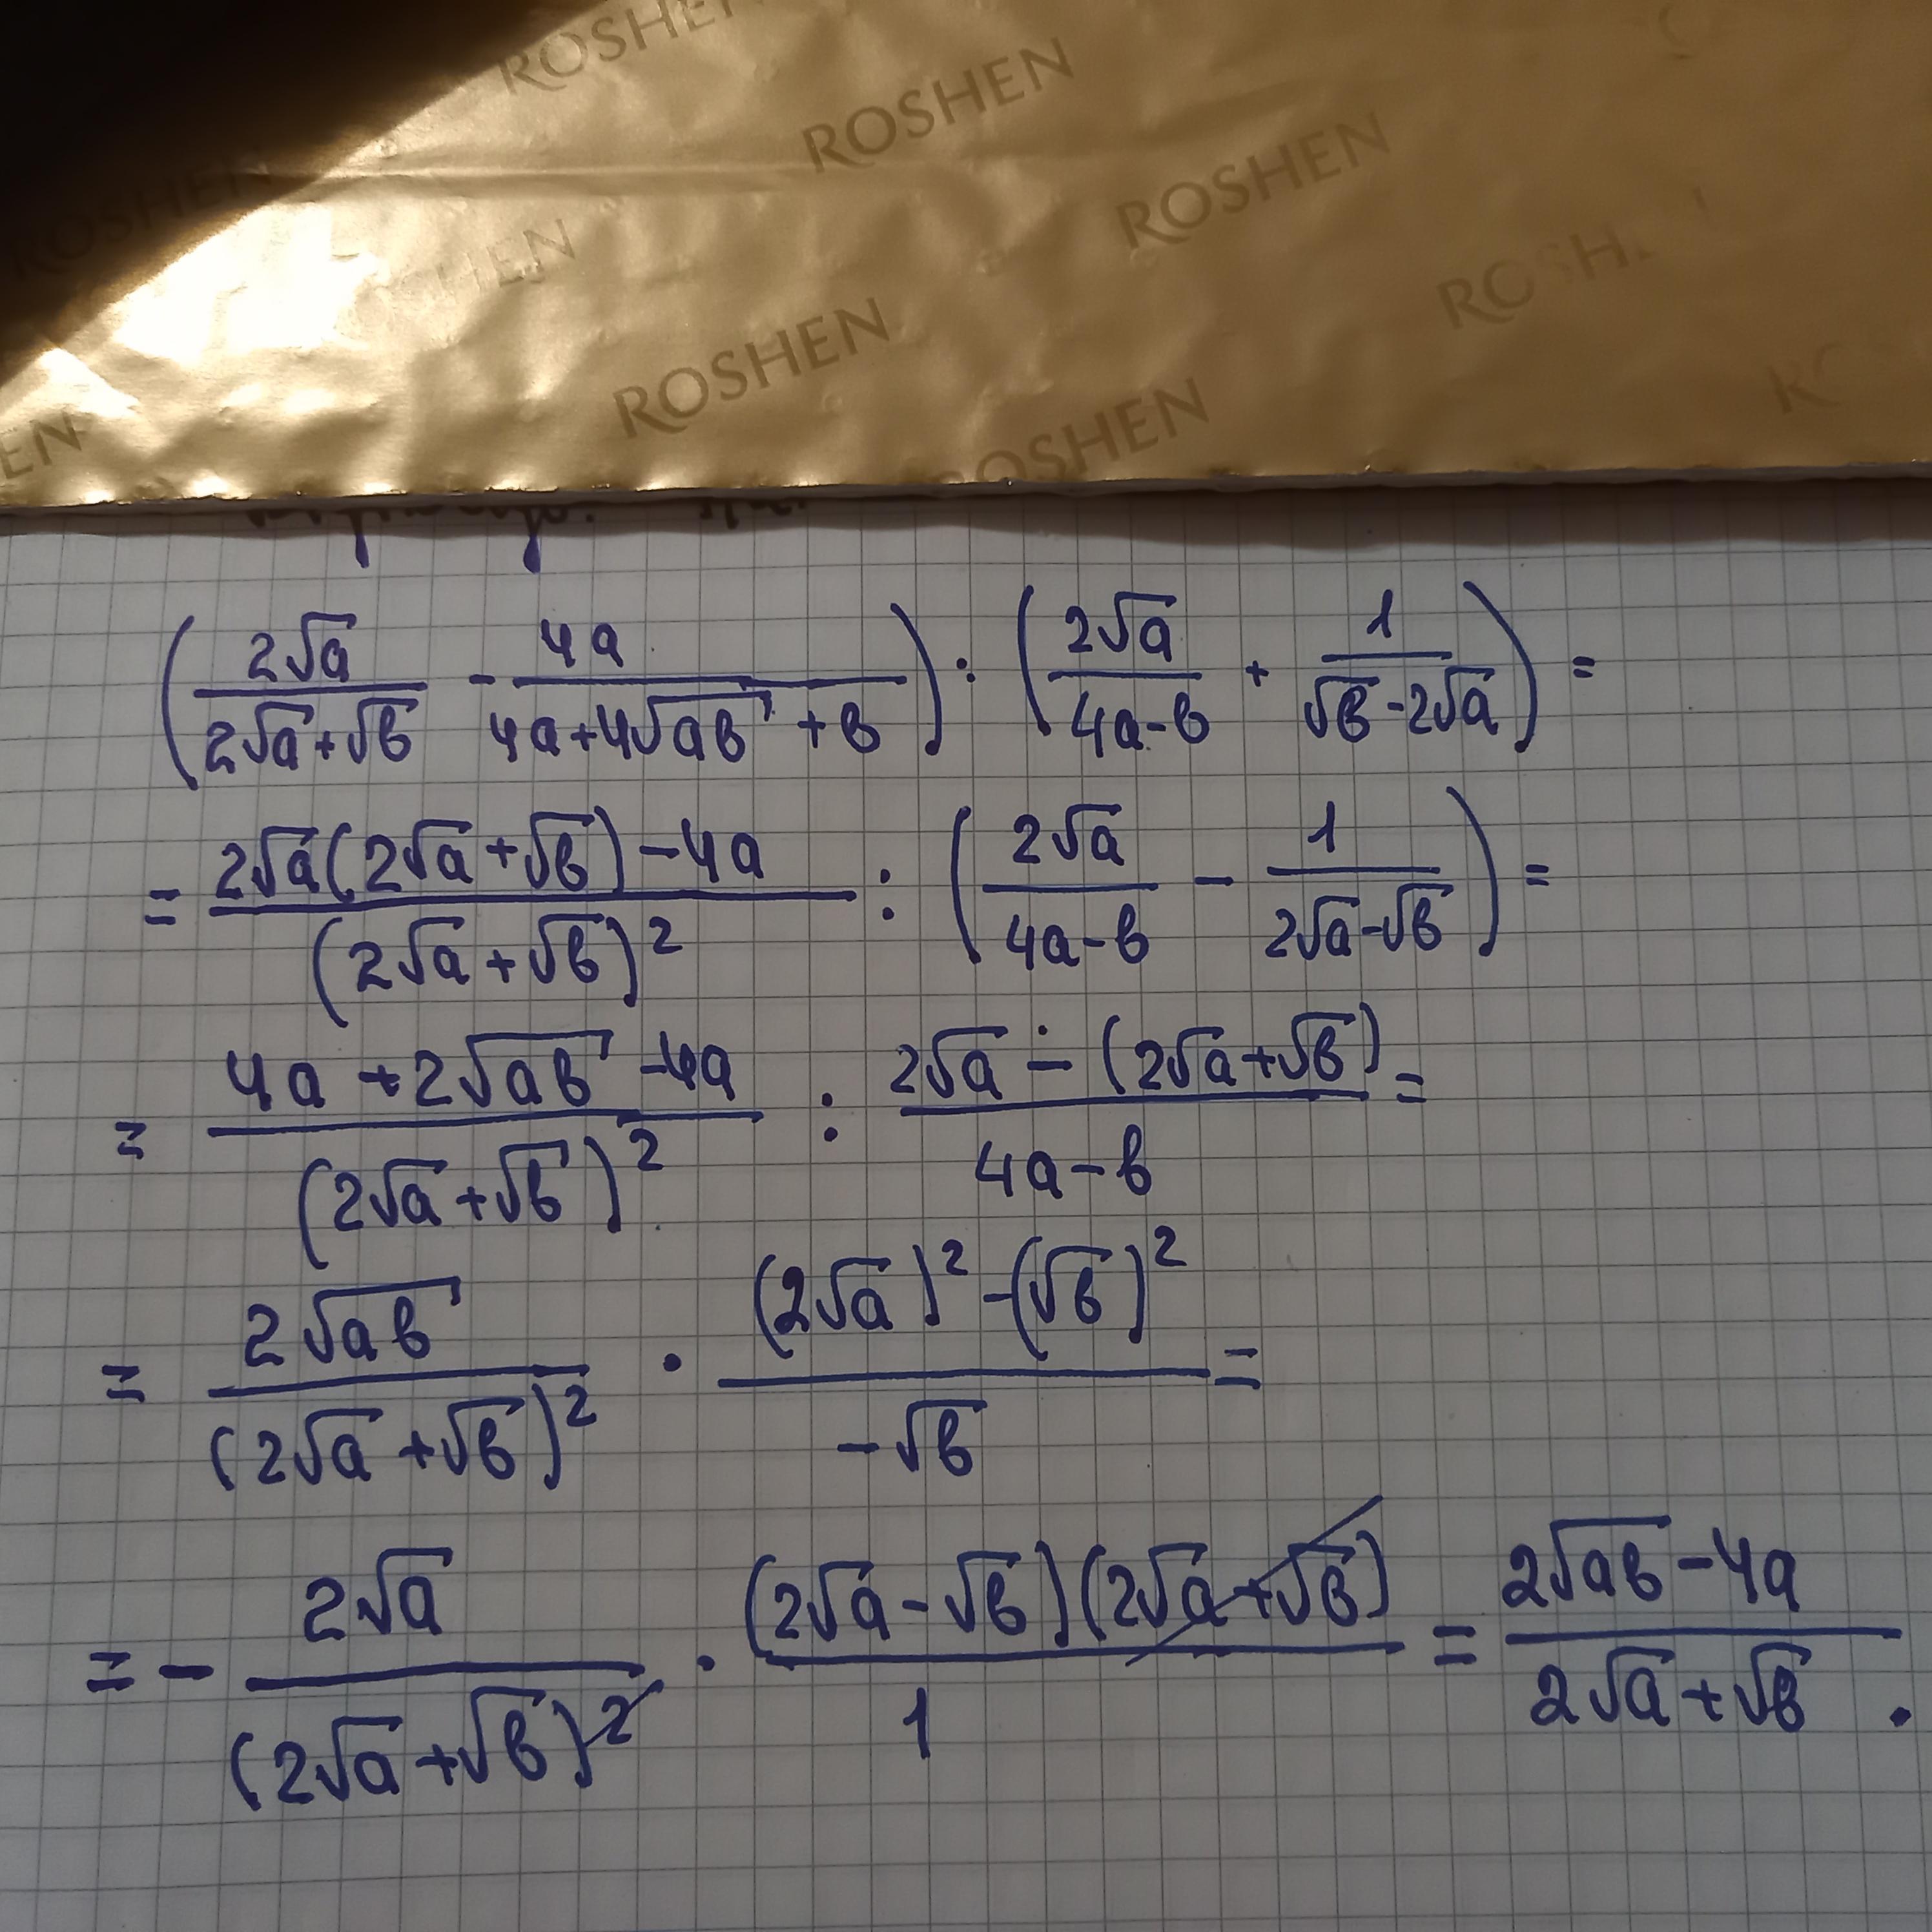 ROSHEN
ROSHEN
ROSHEN
ROSHEN
ROSHEN
(2√a/(2√a+√b) - 4a/(4a+4√ab+b)) : (2√a/(4a-b) + 1/(√b-2√a)) =
= (2√a(2√a+√b)-4a)/(2√a+√b)² : (2√a/(4a-b) - 1/(2√a-√b)) =
= (4a+2√ab-4a)/(2√a+√b)² : (2√a-(2√a+√b))/(4a-b) =
= 2√ab/(2√a+√b)² · ((2√a)²-(√b)²)/(-√b) =
= - 2√a/(2√a+√b)² · (2√a-√b)(2√a+√b)/1 = (2√ab-4a)/(2√a+√b).